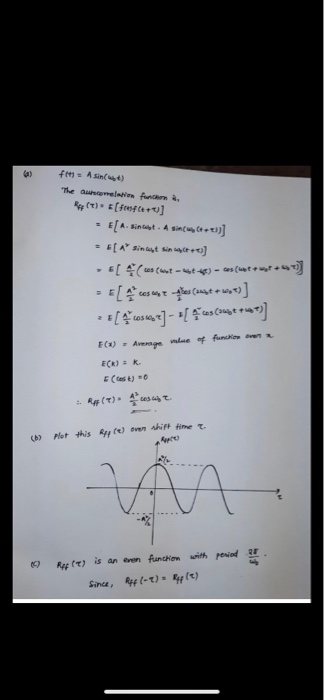 (a) f(t) = A sin(ω₀t)
The autocorrelation function is,
Rff(τ) = E[f(t)f(t+τ)]
= E[A. sinω₀t. A sin(ω₀(t+τ))]
= E[A² sinω₀t sinω₀(t+τ)]
= E[A²/2 (cos(ω₀t - ω₀t - ω₀τ) - cos(ω₀t + ω₀t + ω₀τ))]
= E[A²/2 cosω₀τ - A²/2 cos(2ω₀t + ω₀τ)]
= E[A²/2 cosω₀τ] - E[A²/2 cos(2ω₀t + ω₀τ)]
E(x) = Average value of function over x
E(K) = K.
E(cos t) = 0
∴ Rff(τ) = A²/2 cosω₀τ
(b) Plot this Rff(τ) over shift time τ.
Rff(τ)
A²/2
0
τ
-A²/2
(c) Rff(τ) is an even function with period 2π/ω₀.
Since, Rff(-τ) = Rff(τ)